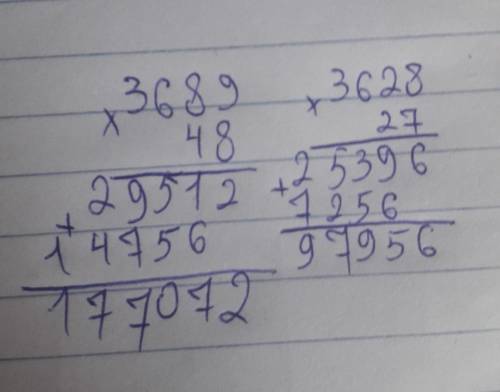 3689
× 48
29512
+
14756
177072
3628
× 27
25396
+
7256
97956